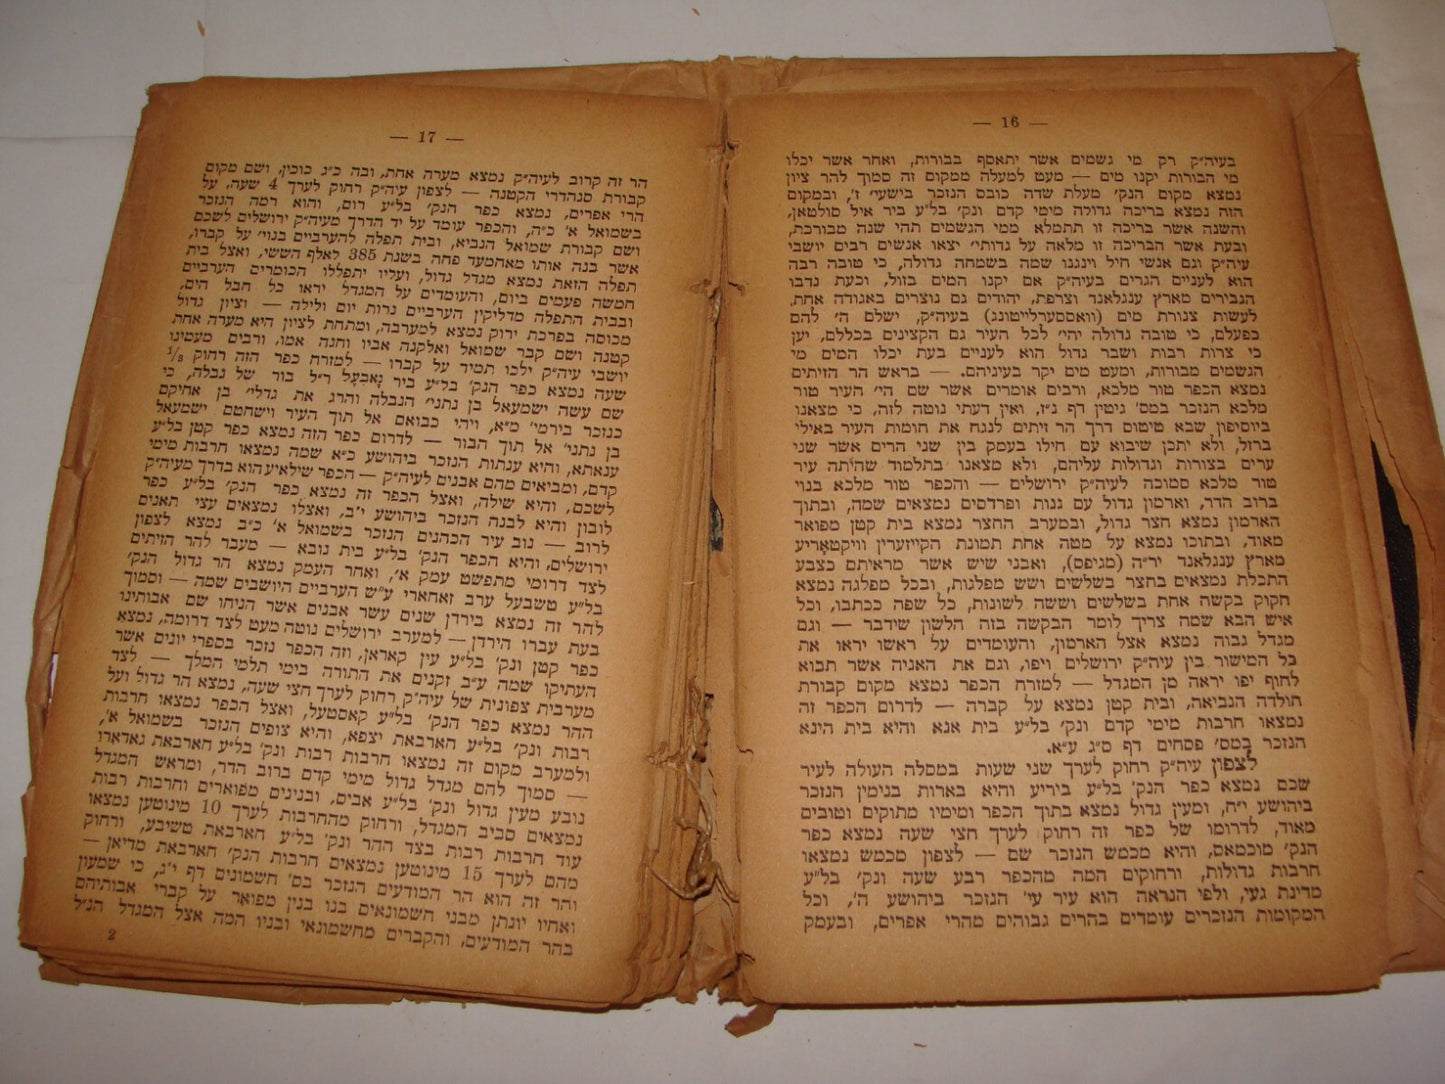 — 16 —
בעיה״ק רק מי גשמים אשר יתאסף בבורות, ואחר אשר יכלו
מי הבורות יקנו מים — מעט למעלה ממקום זה סמוך להר ציון
נמצא מקום הנק׳ מעלת שדה כובס הנזכר בישעי׳ ז׳, ובמקום
הזה נמצא בריכה גדולה מימי קדם ונק׳ בל״ע ביר איל סולטאן,
והשנה אשר בריכה זו תתמלא ממי הגשמים תהי שנה מבורכת,
ובעת אשר הבריכה זו מלאה על גדותי׳ יצאו אנשים רבים יושבי
עיה״ק וגם אנשי חיל וינגנו שמה בשמחה גדולה, כי טובה רבה
הוא לעניים הגרים בעיה״ק אם יקנו המים בזול, וכעת נדבו
הגבירים מארץ ענגלאנד וצרפת, יהודים גם נוצרים באגודה אחת,
לעשות צנורת מים (וואססערלייטונג) בעיה״ק, ישלם ה׳ להם
כפעלם, כי טובה גדולה יהי׳ לכל העיר גם הקצינים בכללם, יען
כי צרות רבות ושבר גדול הוא לעניים בעת יכלו המים מי
הגשמים מבורות, ומעט מים יקר בעיניהם. — בראש הר הזיתים
נמצא הכפר טור מלכא, ורבים אומרים אשר שם הי׳ העיר טור
מלכא הנזכר במס׳ גיטין דף נ״ז, ואין דעתי נוטה לזה, כי מצאנו
ביוסיפון שבא טיטוס דרך הר זיתים לנגח את חומות העיר באילי
ברזל, ולא יתכן שיבוא עם חילו בעמק בין שני הרים אשר שני
ערים בצורות וגדולות עליהם, ולא מצאנו בתלמוד שהיתה עיר
טור מלכא סמוכה לעיה״ק ירושלים — והכפר טור מלכא בנוי
ברוב הדר, וארמון גדול עם גנות ופרדסים נמצאים שמה, ובתוך
הארמון נמצא חצר גדול, ובמערב החצר נמצא בית קטן מפואר
מאוד, ובתוכו נמצא על מטה אחת תמונת הקייזערין וויקטאָריע
מארץ ענגלאנד יר״ה (מגיפס), ואבני שיש אשר מראיתם כצבע
התכלת נמצאים בחצר בשלשים ושש מפלגות, ובכל מפלגה נמצא
חקוק בקשה אחת בשלשים וששה לשונות, כל שפה ככתבו, וכל
איש הבא שמה צריך לומר הבקשה בזה הלשון שידבר — וגם
מגדל גבוה נמצא אצל הארמון, והעומדים על ראשו יראו את
כל המישור בין עיה״ק ירושלים ויפו, וגם את האניה אשר תבוא
לחוף יפו יראה מן המגדל — למזרח הכפר נמצא מקום קבורת
חולדה הנביאה, ובית קטן נמצא על קברה — לדרום הכפר זה
נמצאו חרבות מימי קדם ונק׳ בל״ע בית אנא והיא בית הינא
הנזכר במס׳ פסחים דף ס״ג ע״א.
לצפון עיה״ק רחוק לערך שני שעות במסלה העולה לעיר
שכם נמצא כפר הנק׳ בל״ע ביריע והיא בארות בנימין הנזכר
ביהושע י״ח, ומעין גדול נמצא בתוך הכפר ומימיו מתוקים וטובים
מאוד, לדרומו של כפר זה רחוק לערך חצי שעה נמצא כפר
הנק׳ מוכמאס, והיא מכמש הנזכר שם — לצפון מכמש נמצאו
חרבות גדולות, ורחוקים המה מהכפר רבע שעה ונק׳ בל״ע
מדינת געי, ולפי הנראה הוא עיר עי׳ הנזכר ביהושע ה׳, וכל
המקומות הנזכרים עומדים בהרים גבוהים מהרי אפרים, ובעמק
— 17 —
הר זה קרוב לעיה״ק נמצא מערה אחת, ובה כ״ג כוכין, ושם מקום
קבורת סנהדרי הקטנה — לצפון עיה״ק רחוק לערך 4 שעה, על
הרי אפרים, נמצא כפר הנק׳ בל״ע רום, והוא רמה הנזכר
בשמואל א׳ כ״ה, והכפר עומד על יד הדרך מעיה״ק ירושלים לשכם
ושם קבורת שמואל הנביא, ובית תפלה להערביים בנוי׳ על קברו,
אשר בנה אותו מאהמעד פחה בשנת 385 לאלף הששי, ואצל בית
תפלה הזאת נמצא מגדל גדול, ועליו יתפללו הכומרים הערביים
חמשה פעמים ביום, והעומדים על המגדל יראו כל חבל הים,
ובבית התפלה מדליקין הערביים נרות יום ולילה — וציון גדול
מכוסה בפרכת ירוק נמצא למערבה, ומתחת לציון היא מערה אחת
קטנה ושם קבר שמואל ואלקנה אביו וחנה אמו, ורבים מעמינו
יושבי עיה״ק ילכו תמיד על קברו — למזרח כפר הזה רחוק ⅛
שעה נמצא כפר הנק׳ בל״ע ביר נאבעל ר״ל בור של נבלה, כי
שם עשה ישמעאל בן נתני׳ הנבלה והרג את גדלי׳ בן אחיקם
כנזכר בירמי׳ מ״א, ויהי כבואם אל תוך העיר וישחטם ישמעאל
בן נתני׳ אל תוך הבור — לדרום כפר הזה נמצא כפר קטן בל״ע
ענאתא, והיא ענתות הנזכר ביהושע כ״א שמה נמצאו חרבות מימי
קדם, ומביאים מהם אבנים לעיה״ק — הכפר שילאיע הוא בדרך מעיה״ק
לשכם, והיא שילה, ואצל הכפר זה נמצא כפר הנק׳ בל״ע כפר
לובון והיא לבנה הנזכר ביהושע י״ב, ואצלו נמצאים עצי תאנים
לרוב — נוב עיר הכהנים הנזכר בשמואל א׳ כ״ב נמצא לצפון
ירושלים, והיא הכפר הנק׳ בל״ע בית נובא — מעבר להר הזיתים
לצד דרומי מתפשט עמק א׳, ואחר העמק נמצא הר גדול הנק׳
בל״ע טשבעל ערב זאחארי ע״ש הערביים היושבים שמה — וסמוך
להר זה נמצא בירדן שנים עשר אבנים אשר הניחו שם אבותינו
בעת עברו הירדן — למערב ירושלים נוטה מעט לצד דרומה, נמצא
כפר קטן ונק׳ בל״ע עין קאראן, וזה הכפר נזכר בספרי יונים אשר
העתיקו שמה ע״ב זקנים את התורה בימי תלמי המלך — לצד
מערבית צפונית של עיה״ק רחוק לערך חצי שעה, נמצא הר גדול ועל
ההר נמצא כפר הנק׳ בל״ע קאסטעל, ואצל הכפר נמצאו חרבות
רבות ונק׳ בל״ע חארבאת יצפא, והיא צופים הנזכר בשמואל א׳,
ולמערב מקום זה נמצאו חרבות רבות ונק׳ בל״ע חארבאת גאדארו
— סמוך להם מגדל גדול מימי קדם ברוב הדר, ומראש המגדל
נובע מעין גדול ונק׳ בל״ע אבים, ובנינים מפוארים וחרבות רבות
נמצאים סביב המגדל, ורחוק מהחרבות לערך 10 מינוטען נמצאו
עוד חרבות רבות בצד ההר ונק׳ בל״ע חארבאת טשיבע, ורחוק
מהם לערך 15 מינוטען נמצאים חרבות הנק׳ חארבאת מדיאן —
והר זה הוא הר המודעים הנזכר בס׳ חשמונים דף י״ג, כי שמעון
ואחיו יונתן מבני חשמונאים בנו בנין מפואר על קברי אבותיהם
בהר המודעים, והקברים מחשמונאי ובניו המה אצל המגדל הנ״ל
2